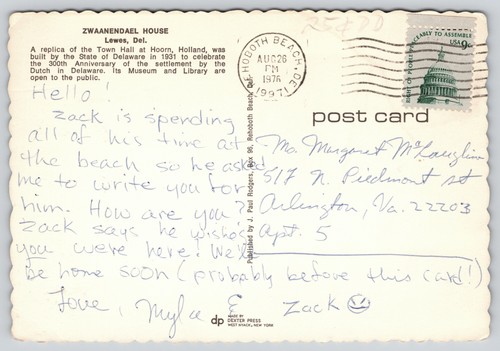 ZWAANENDAEL HOUSE
Lewes, Del.
A replica of the Town Hall at Hoorn, Holland, was
built by the State of Delaware in 1931 to celebrate
the 300th Anniversary of the settlement by the
Dutch in Delaware. Its Museum and Library are
open to public.
Hello!
Zack is spending
all of his time at
the beach so he asked
me to write you for
him. How are you?
Zack says he wishes
you were here! We'll
be home soon (probably before this card!)
Love, Myla & Zack
25¢
REHOBOTH BEACH, DE
AUG 26
PM
1976
19971
RIGHT OF PEOPLE PEACEABLY TO ASSEMBLE
USA 9c
post card
Ms. Margaret McLaughlin
517 N. Piedmont st
Arlington, Va. 22203
Apt. 5
Published by J. Paul Rodgers, Box 96, Rehoboth Beach, De.
dp
MADE BY
DEXTER PRESS
WEST NYACK, NEW YORK